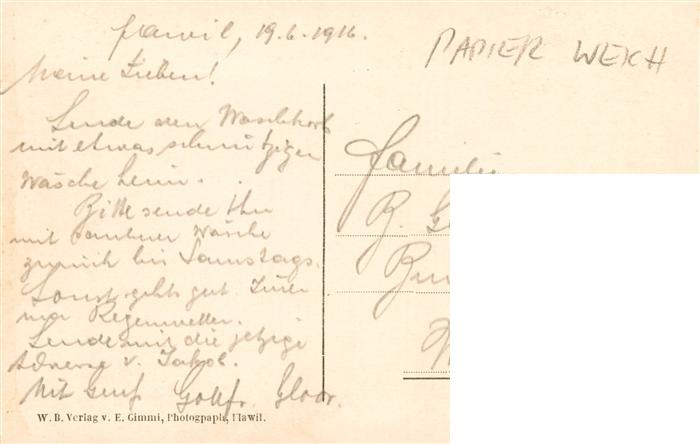 Flawil, 19.6.1916.
PAPIER WEICH
Meine Lieben!
Sende den Waschkorb
mit etwas schmutziger
Wäsche heim.
Bitte sende Ihn
mit sauberer Wäsche
zurück bis Samstags.
Sonst gehts gut. Immer
nur Regenwetter.
Sende mir die jetzige
Adresse v. Jakob.
Mit Gruß Gottfr. Gloor.
Familie
W. B. Verlag v. E. Gimmi, Photograph, Flawil.